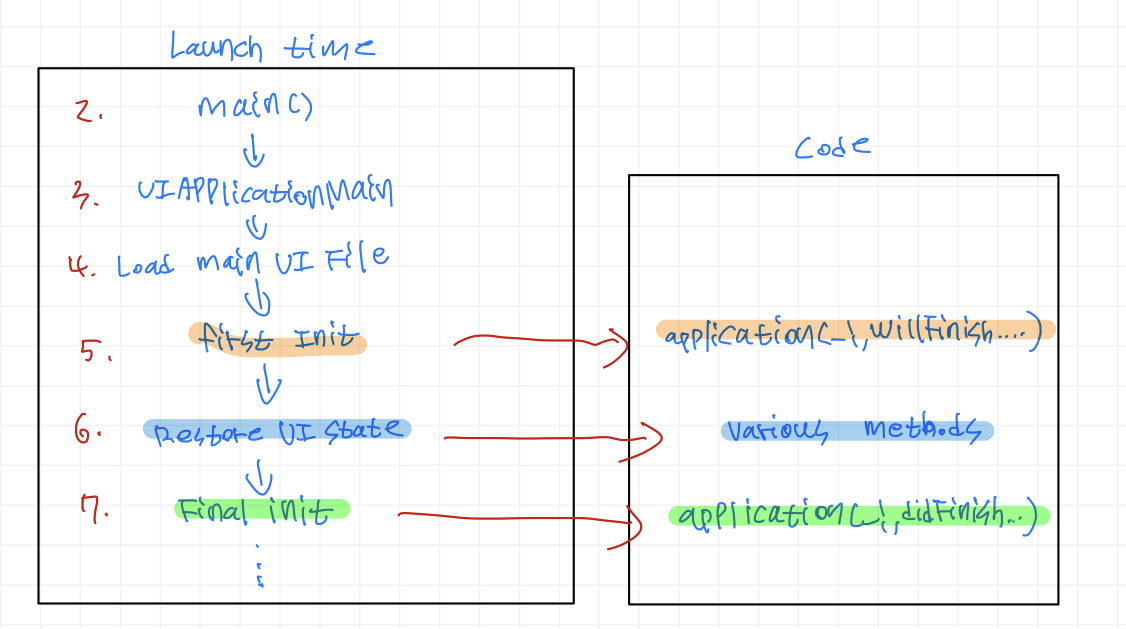 Launch time
2. main()
3. UIApplicationMain
4. Load main UI File
5. first Init
6. Restore UI State
7. Final init
Code
application(_:,willFinish....)
various methods
application(_:,didFinish...)